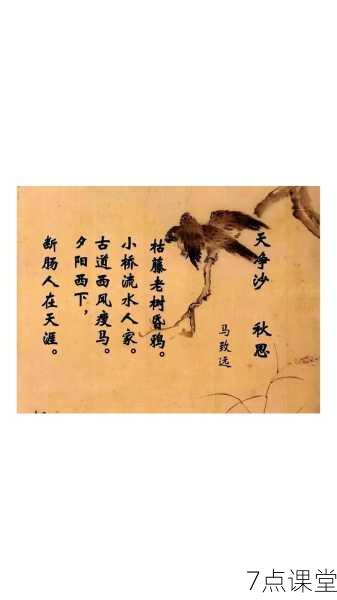 天净沙 秋思
马致远
枯藤老树昏鸦。
小桥流水人家。
古道西风瘦马。
夕阳西下，
断肠人在天涯。
7点课堂